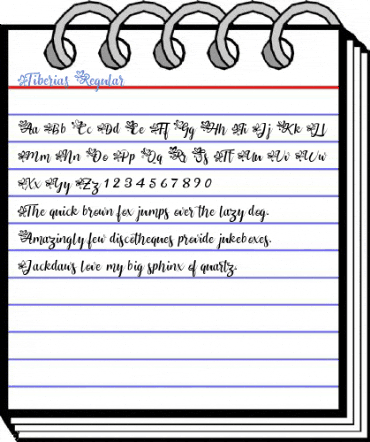 Tiberias Regular
Aa Bb Cc Dd Ee Ff Gg Hh Ii Jj Kk Ll
Mm Nn Oo Pp Qq Rr Ss Tt Uu Vv Ww
Xx Yy Zz 1 2 3 4 5 6 7 8 9 0
The quick brown fox jumps over the lazy dog.
Amazingly few discotheques provide jukeboxes.
Jackdaws love my big sphinx of quartz.